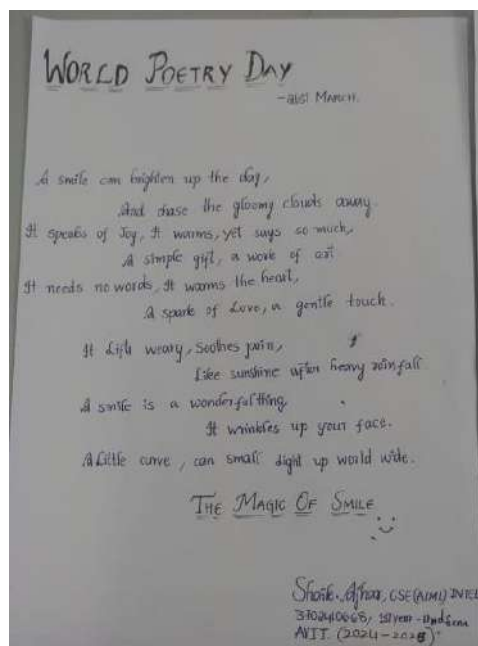 WORLD POETRY DAY
-21st MARCH.
A smile can brighten up the day,
And chase the gloomy clouds away.
It speaks of Joy, It warms, yet says so much,
A simple gift, a work of art
It needs no words, It warms the heart,
A spark of Love, a gentle touch.
It Lifts weary, Soothes pain,
Like sunshine after heavy rainfall.
A smile is a wonderful thing
It wrinkles up your face.
A Little curve, can small light up world wide.
THE MAGIC OF SMILE
Shaik. CSE(AIML) INTEL
3702410668, 1st year - IInd Sem
AVIT. (2024-2025)